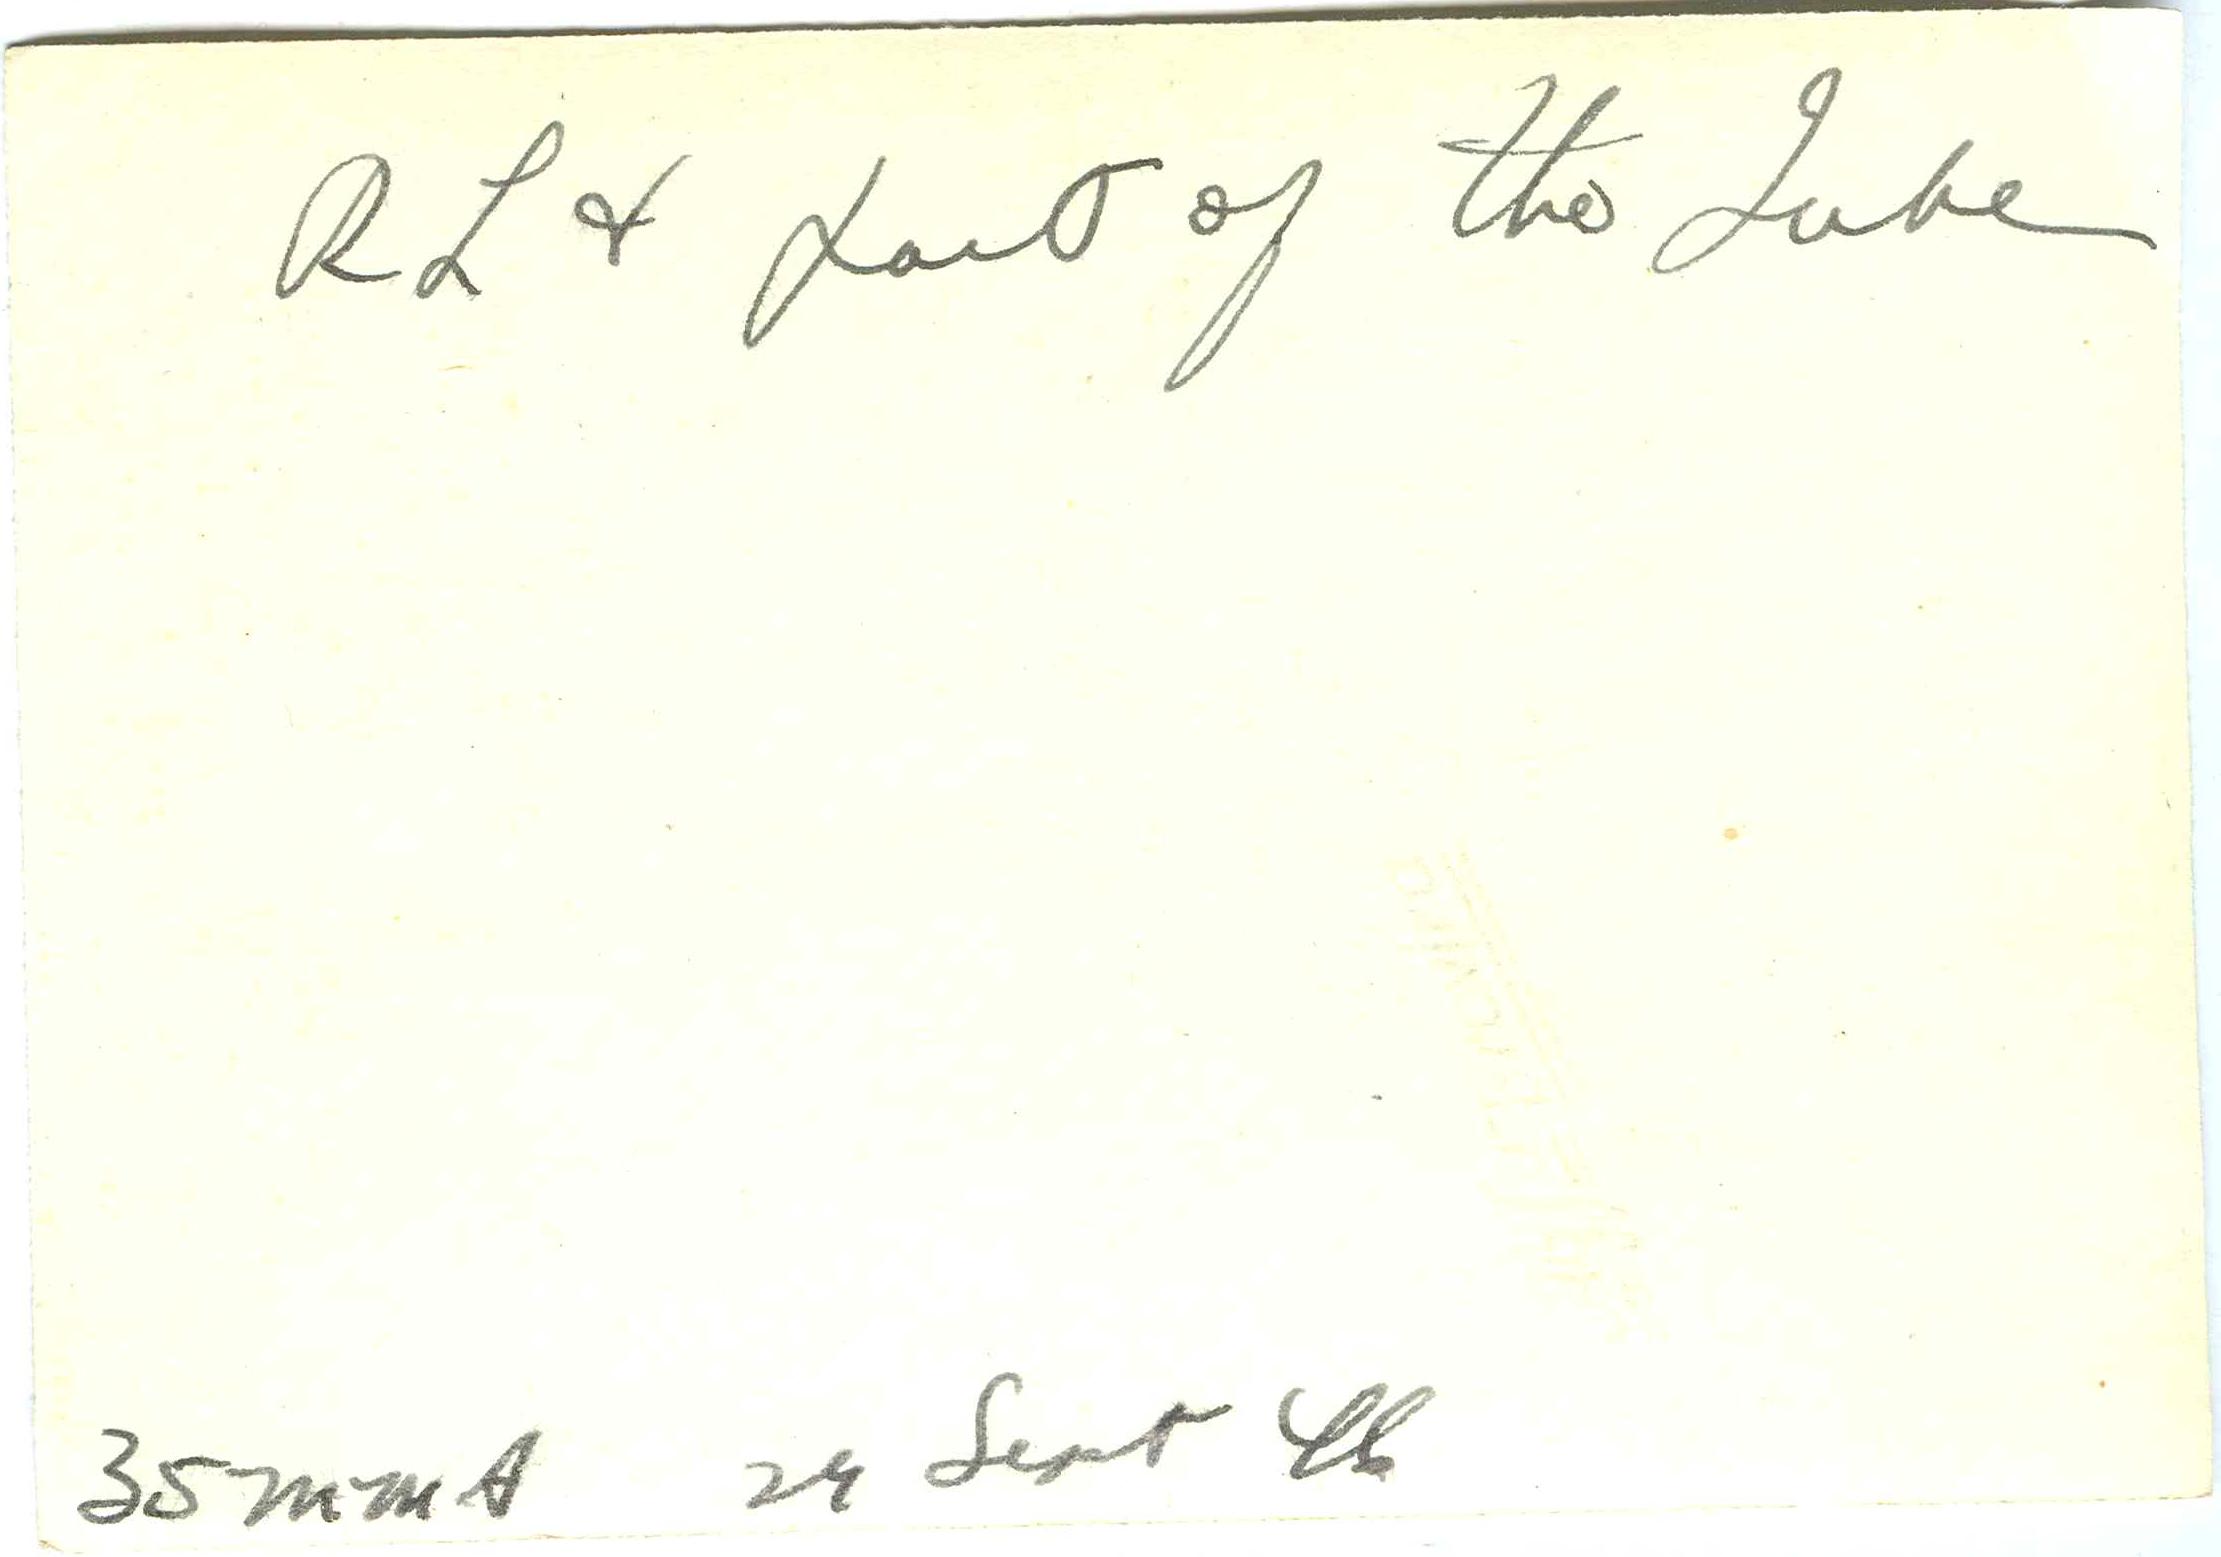 RL & part of the Tube
35mm A 29 Sept 46